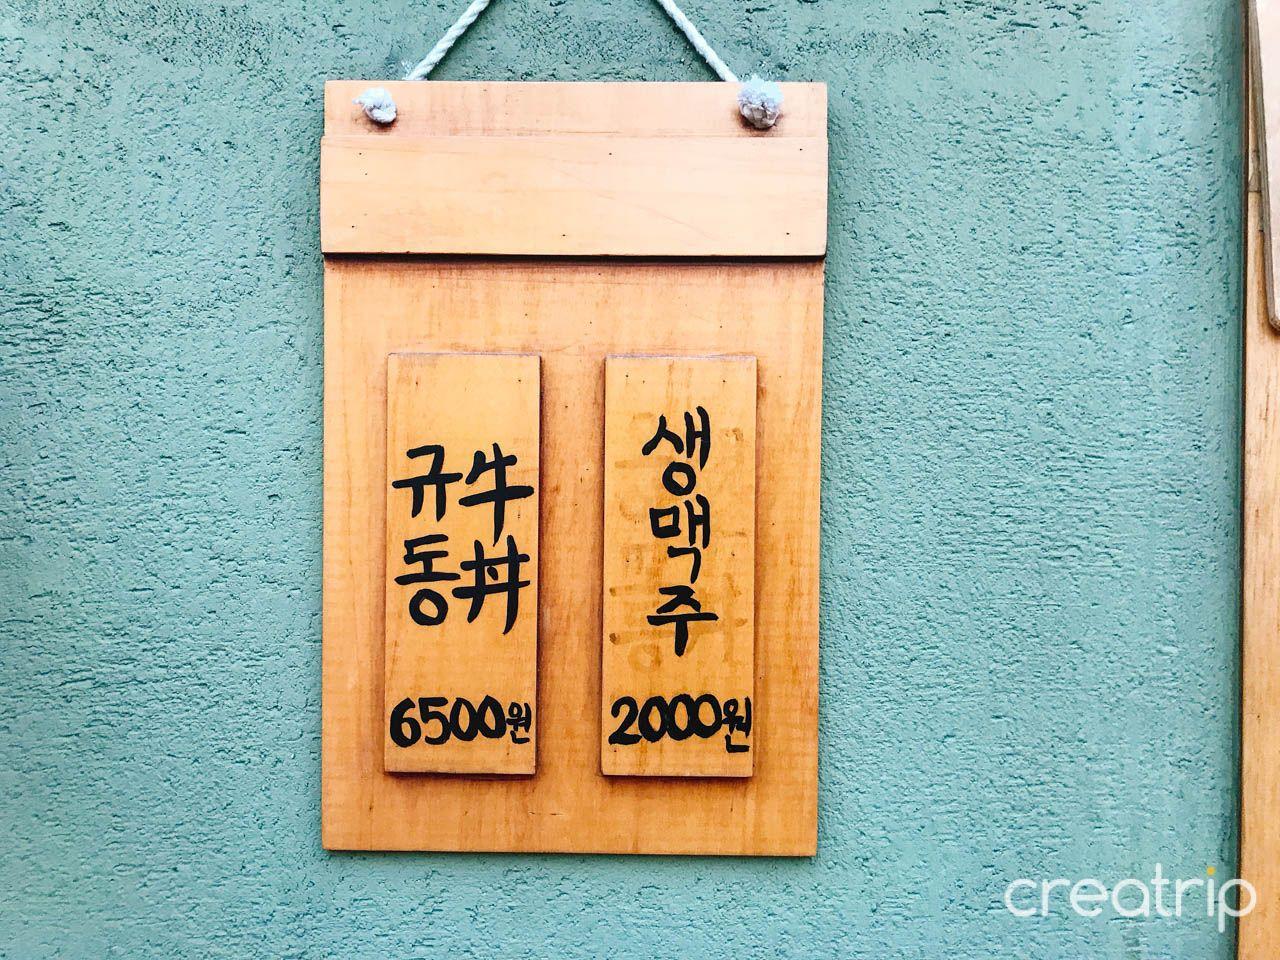 규동
牛丼
6500원
생맥주
2000원
creatrip